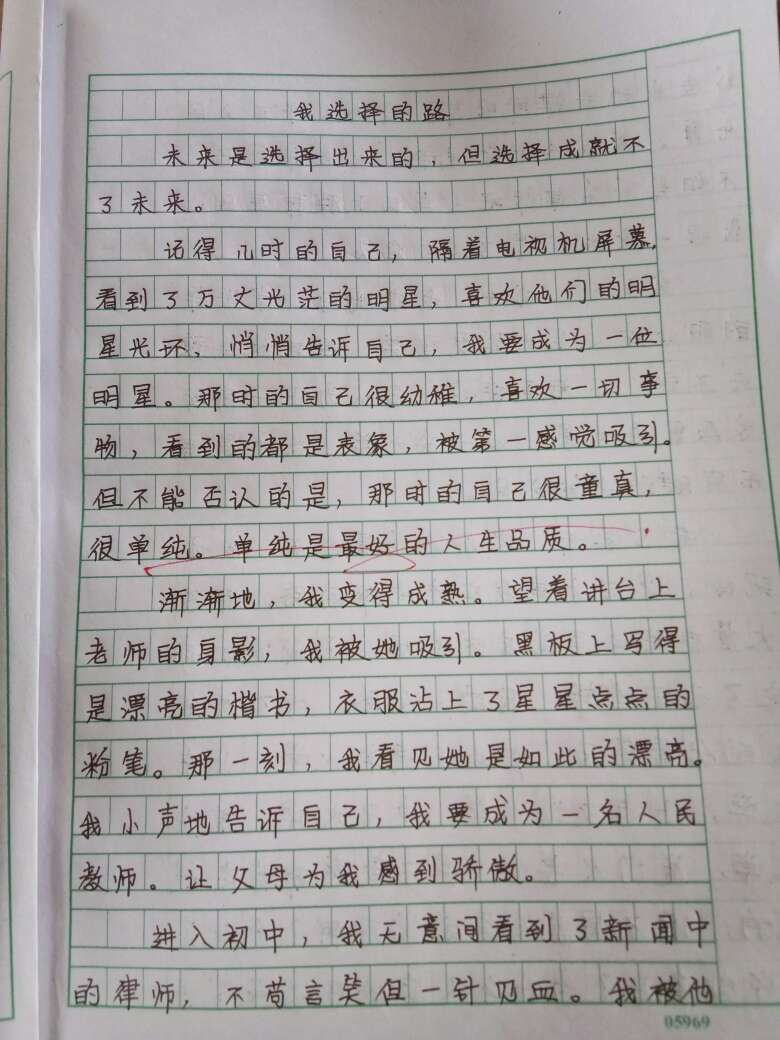 我选择的路
未来是选择出来的，但选择成就不
了未来。
记得儿时的自己，隔着电视机屏幕，
看到了万丈光茫的明星，喜欢他们的明
星光环，悄悄告诉自己，我要成为一位
明星。那时的自己很幼稚，喜欢一切事
物，看到的都是表象，被第一感觉吸引。
但不能否认的是，那时的自己很童真，
很单纯。单纯是最好的人生品质。
渐渐地，我变得成熟。望着讲台上
老师的身影，我被她吸引。黑板上写得
是漂亮的楷书，衣服沾上了星星点点的
粉笔。那一刻，我看见她是如此的漂亮。
我小声地告诉自己，我要成为一名人民
教师。让父母为我感到骄傲。
进入初中，我无意间看到了新闻中
的律师，不苟言笑但一针见血。我被他
05969